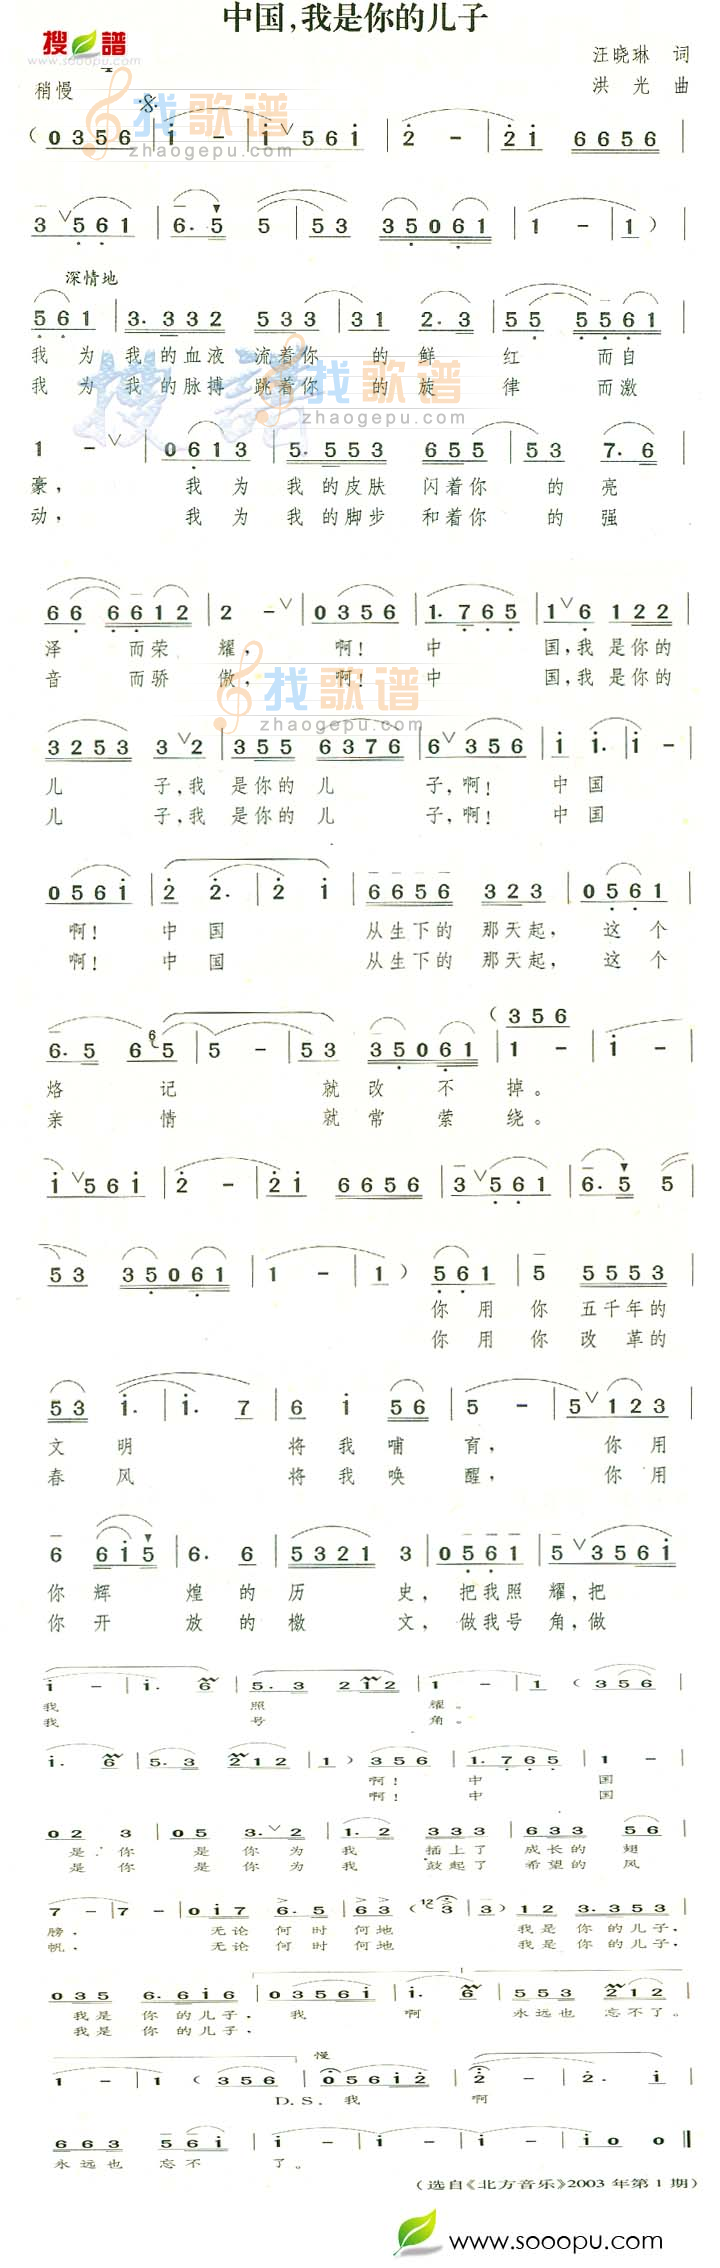 中国,我是你的儿子
搜 谱
www.sooopu.com
汪晓琳 词
洪 光 曲
稍慢
找歌谱
zhaogepu.com
(0356 | i - | i∨561 | 2 - | 2i 6656 |
3∨561 | 6.5 5 | 53 35061 | 1 - | 1) |
深情地
561 | 3.332 533 | 31 2.3 | 55 5561 |
我 为 我的血液 流着你 的 鲜 红 而自
我 为 我的脉搏 跳着你 的 旋 律 而激
搜 谱
找歌谱
zhaogepu.com
1 - ∨ | 0613 | 5.553 655 | 53 7.6 |
豪, 我 为 我的皮肤 闪着你 的 亮
动, 我 为 我的脚步 和着你 的 强
66 6612 | 2 - ∨ | 0356 | 1.765 | 1∨6 122 |
泽 而荣 耀, 啊! 中 国,我 是你的
音 而骄 傲, 啊! 中 国,我 是你的
找歌谱
zhaogepu.com
3253 3∨2 | 355 6376 | 6∨356 | i i. | i - |
儿 子,我 是你的 儿 子,啊! 中国
儿 子,我 是你的 儿 子,啊! 中国
056i | 2 2. | 2 i | 6656 323 | 0561 |
啊! 中国 从生下的 那天起, 这 个
啊! 中国 从生下的 那天起, 这 个
(356
6.5 6 5 | 5 - | 53 35061 | 1 - | i - |
烙 记 就 改 不 掉。
亲 情 就 常 萦 绕。
i∨561 | 2 - | 2i 6656 | 3∨561 | 6.5 5 |
53 35061 | 1 - | 1) 561 | 5 5553 |
你 用 你 五千年的
你 用 你 改革的
53 i. | i. 7 | 6 i 56 | 5 - | 5∨123 |
文 明 将 我 哺 育, 你 用
春 风 将 我 唤 醒, 你 用
6 6i5 | 6. 6 | 5321 3 | 0561 | 5∨3561 |
你 辉 煌 的 历 史, 把我照 耀,把
你 开 放 的 檄 文, 做我号 角,做
i - | i. 6 | 5.3 212 | 1 - | 1 (356 |
我 照 耀。
我 号 角。
i. 6 | 5.3 212 | 1) 356 | 1.765 | 1 - |
啊! 中 国
啊! 中 国
02 3 | 05 3.∨2 | 1.2 333 | 633 56 |
是 你 是 你 为 我 插上了 成长的 翅
是 你 是 你 为 我 鼓起了 希望的 风
7 - | 7 - | 0i7 6.5 | 63 (12 3 | 3) 12 3.353 |
膀, 无论 何时 何地 我是 你的儿子,
帆, 无论 何时 何地 我是 你的儿子,
035 6.6i6 | 0356i | i. 6 | 553 212 |
我是 你的儿子, 我 啊 永远也 忘不了。
我是 你的儿子,
慢
1 - | 1 (356 | 056i2 | 2 - | 2. i |
D.S. 我 啊
663 56i | i - | i - | i - | i 0 0 ‖
永远也 忘不 了。
(选自《北方音乐》2003年第1期)
www.sooopu.com